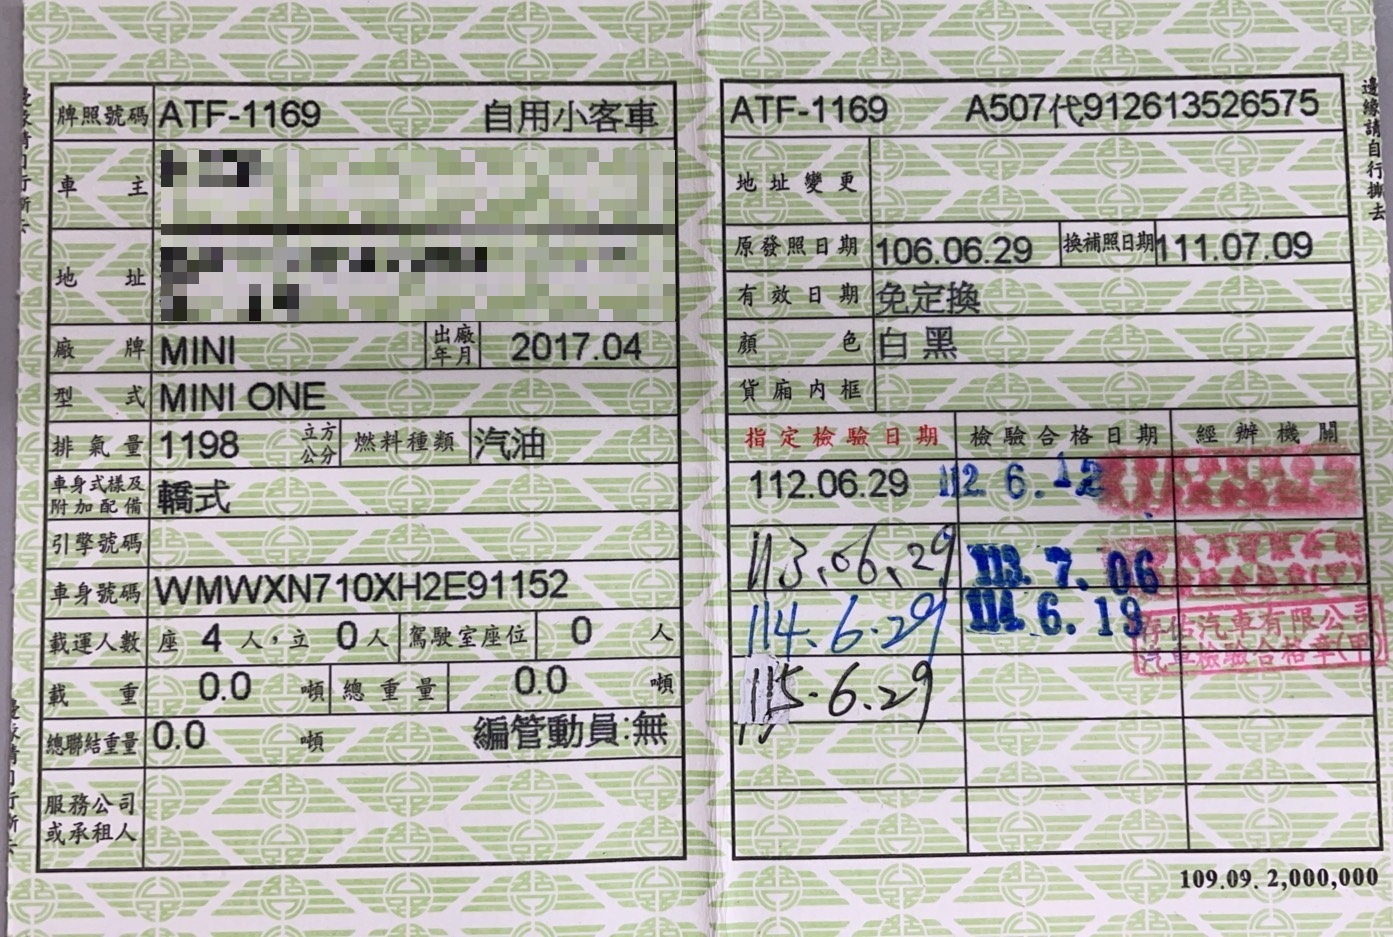 牌照號碼 ATF-1169 自用小客車
車主
地址
廠牌 MINI 出廠年月 2017.04
型式 MINI ONE
排氣量 1198 立方公分 燃料種類 汽油
車身式樣及附加配備 轎式
引擎號碼
車身號碼 WMWXN710XH2E91152
載運人數 座 4 人,立 0 人 駕駛室座位 0 人
載重 0.0 噸 總重量 0.0 噸
總聯結重量 0.0 噸 編管動員:無
服務公司或承租人
ATF-1169 A507代912613526575
地址變更
原發照日期 106.06.29 換補照日期 111.07.09
有效日期 免定換
顏色 白黑
貨廂內框
指定檢驗日期 檢驗合格日期 經辦機關
112.06.29 112.6.12
113.06.29 113.7.06
114.6.29 114.6.19 汽車有限公司
汽車檢驗合格章(甲)
115.6.29
109.09. 2,000,000
邊緣請自行撕去